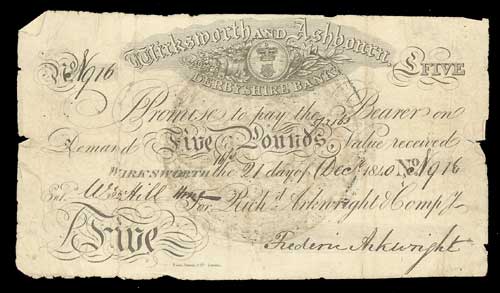 Wirksworth AND Ashbourn
DERBYSHIRE BANK
No. N916
£ FIVE
I Promise to pay the Bearer on
Demand Five Pounds Value received
WIRKSWORTH the 21 day of Decr. 1840 No. N916
Ent. Wm. Hill For Richd. Arkwright & Comp.y
Five
Frederic Arkwright